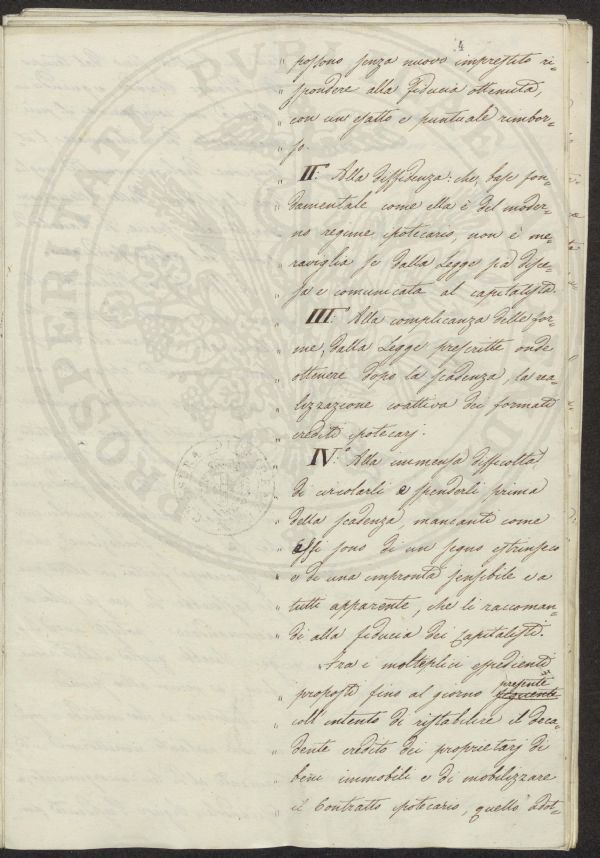 4
" possono senza nuovo imprestito ri-
" spondere alla fiducia ottenuta,
" con un esatto e puntuale rimbor-
" so.
" II.° Alla diffidenza: che, base fon-
" damentale come ella è del moder-
" no regime ipotecario, non è me-
" raviglia se dalla Legge sia disce-
" sa e comunicata al capitalista.
" III.° Alla complicanza delle for-
" me, dalla Legge prescritte onde
" ottenere dopo la scadenza, la rea-
" lizzazione coattiva dei formati
" crediti ipotecarj.
" IV.° Alla immensa difficoltà
" di circolarli e spenderli prima
" della scadenza, mancanti come
" essi sono di un segno estrinseco
" e di una impronta sensibile e a
" tutti apparente, che li raccoman-
" di alla fiducia dei Capitalisti.
" Tra i molteplici espedienti
" proposti fino al giorno presente
" coll'intento di ristabilire il deca-
" dente credito dei proprietarj di
" beni immobili e di mobilizzare
" il Contratto ipotecario, quello adot-
PROSPERITATI PUBL